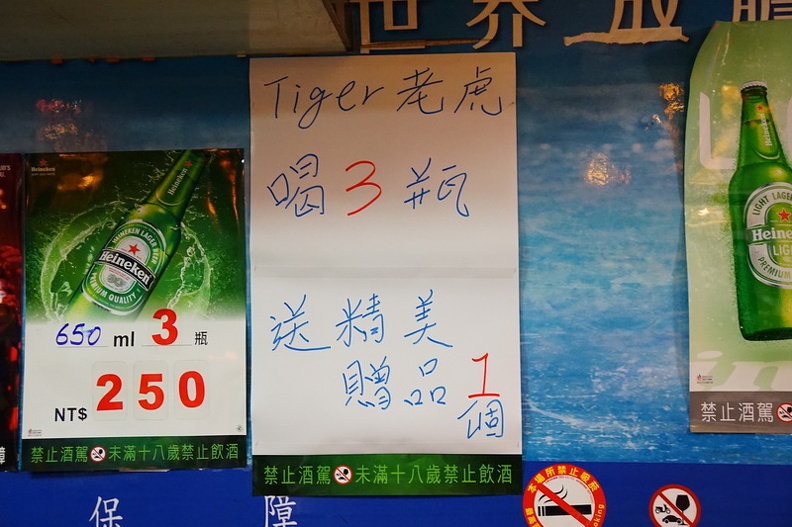 世界 放
Tiger 老虎
喝 3 瓶
送精美
贈品 1
個
禁止酒駕 未滿十八歲禁止飲酒
Heineken
Heineken
HEINEKEN LAGER BEER
Heineken
PREMIUM QUALITY
650 ml 3 瓶
NT$ 250
禁止酒駕 未滿十八歲禁止飲酒
障
LIGHT LAGER
Heine
LIG
PREMIUM
禁止酒駕
保 障
本場所禁止吸菸